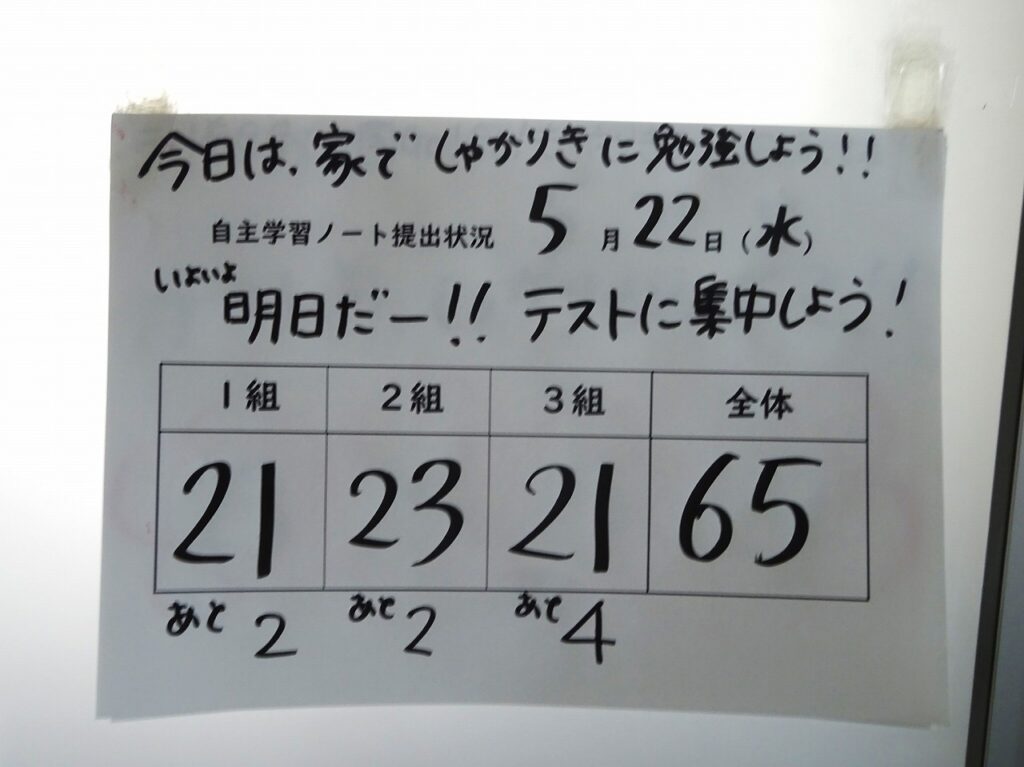 今日は、家でしゃかりきに勉強しよう!!
自主学習ノート提出状況 5月22日(水)
いよいよ
明日だー!! テストに集中しよう!
1組 2組 3組 全体
21 23 21 65
あと2 あと2 あと4